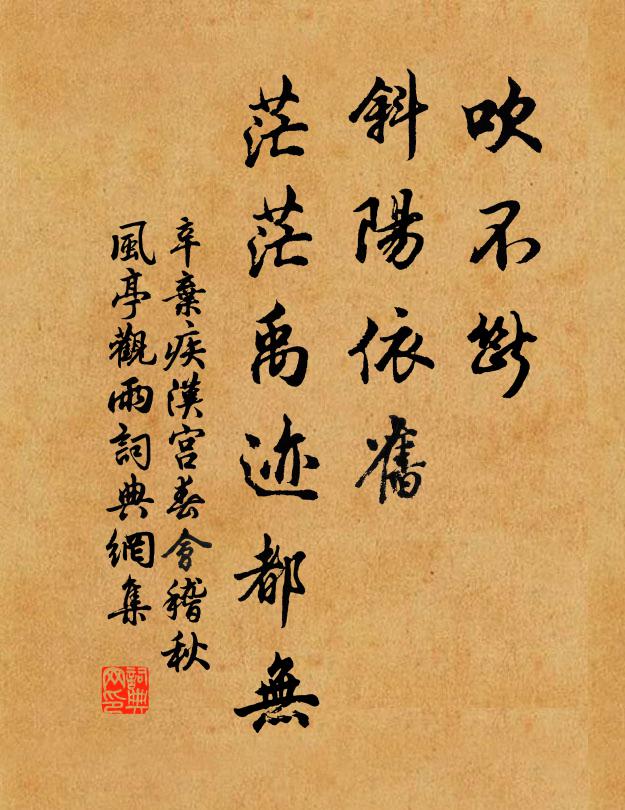 吹不斷
斜陽依舊
茫茫禹迹都無
辛棄疾漢宮春會稽秋
風亭觀雨詞典網集
詞典網印